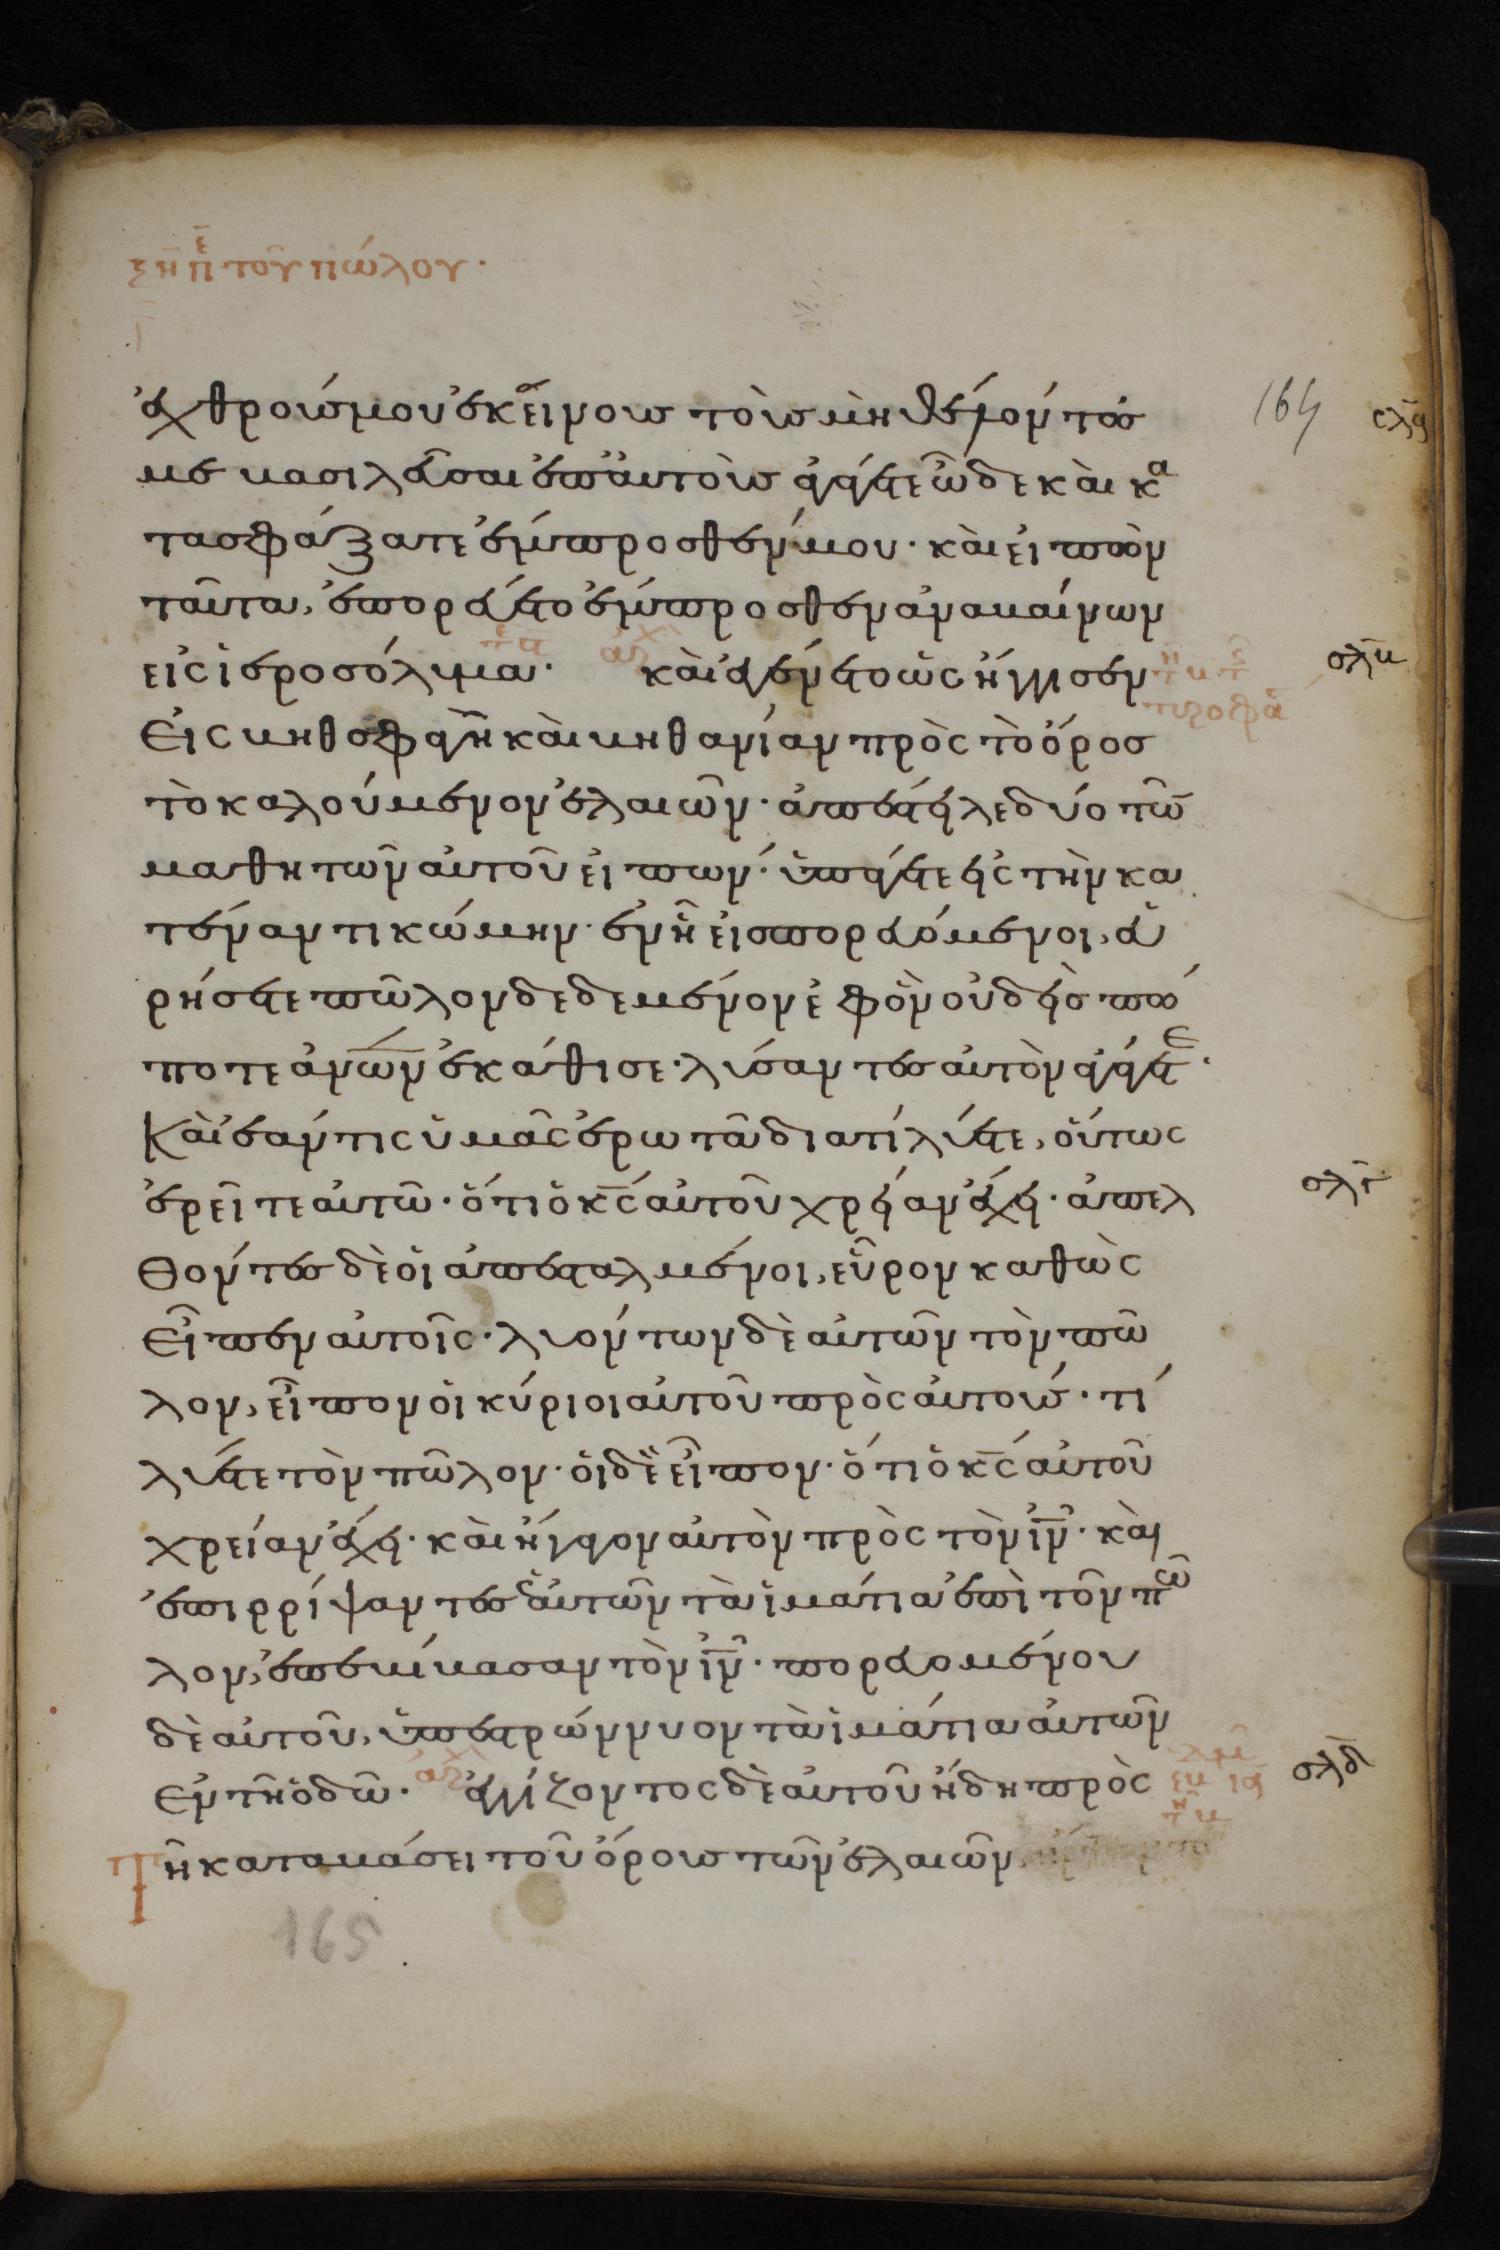 ξη περὶ τοῦ πώλου·
ἐχθρούς μου ἐκείνους τοὺς μὴ θελήσαντάς
με βασιλεῦσαι ἐπ' αὐτοὺς ἀγάγετε ὧδε καὶ κα
τασφάξατε ἔμπροσθέν μου· καὶ εἰπὼν
ταῦτα, ἐπορεύετο ἔμπροσθεν ἀναβαίνων
εἰς ἱεροσόλυμα· καὶ ἐγένετο ὡς ἤγγισεν
εἰς βηθσφαγῆ καὶ βηθανίαν πρὸς τὸ ὄρος
τὸ καλούμενον ἐλαιῶν· ἀπέστειλε δύο τῶν
μαθητῶν αὐτοῦ εἰπών· ὑπάγετε εἰς τὴν κα
τέναντι κώμην· ἐν ᾗ εἰσπορευόμενοι, εὑ
ρήσετε πῶλον δεδεμένον ἐφ' ὃν οὐδεὶς πώ
ποτε ἀνων ἐκάθισε· λύσαντες αὐτὸν ἀγάγετε·
Καὶ ἐάν τις ὑμᾶς ἐρωτᾶ διατί λύετε, οὕτως
ἐρεῖτε αὐτῶ· ὅτι ὁ κς αὐτοῦ χρείαν ἔχει· ἀπελ
θόντες δὲ οἱ ἀπεσταλμένοι, εὗρον καθὼς
εἶπεν αὐτοῖς· λυόντων δὲ αὐτῶν τὸν πῶ
λον, εἶπον οἱ κύριοι αὐτοῦ πρὸς αὐτούς· τί
λύετε τὸν πῶλον· οἱ δὲ εἶπον· ὅτι ὁ κς αὐτοῦ
χρείαν ἔχει· καὶ ἤγαγον αὐτὸν πρὸς τὸν ιν· καὶ
ἐπιρρίψαντες ἑαυτῶν τὰ ἱμάτια ἐπὶ τὸν πῶ
λον, ἐπεβίβασαν τὸν ιν· πορευομένου
δὲ αὐτοῦ, ὑπεστρώννυον τὰ ἱμάτια αὐτῶν
ἐν τῆ ὁδῶ· ἐγγίζοντος δὲ αὐτοῦ ἤδη πρὸς
τῆ καταβάσει τοῦ ὄρους τῶν ἐλαιῶν
164
σλβ
σλγ
σλδ
165